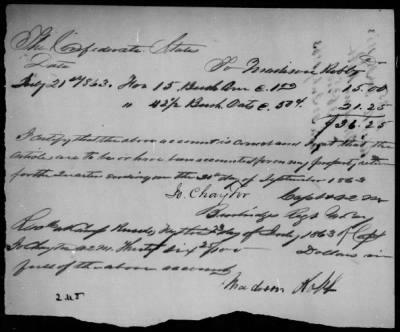 The Confederate States
To Madison Kobbs Dr
Date
July 21st 1863. For 15 Bush Corn @ 1.00 15.00
" 42½ Bush Oats @ 50¢ 21.25
$36.25
I certify that the above account is correct and just that the
articles are to be or have been accounted for on my property return
for the Quarter ending on the 30th day of September 1863
Jo. Chaytor
Capt & A.Q.M.
Received at Camp this day of July 1863 of Capt
Jo Chaytor AQM Thirty six Dollars in
full of the above account
Madison
2.45